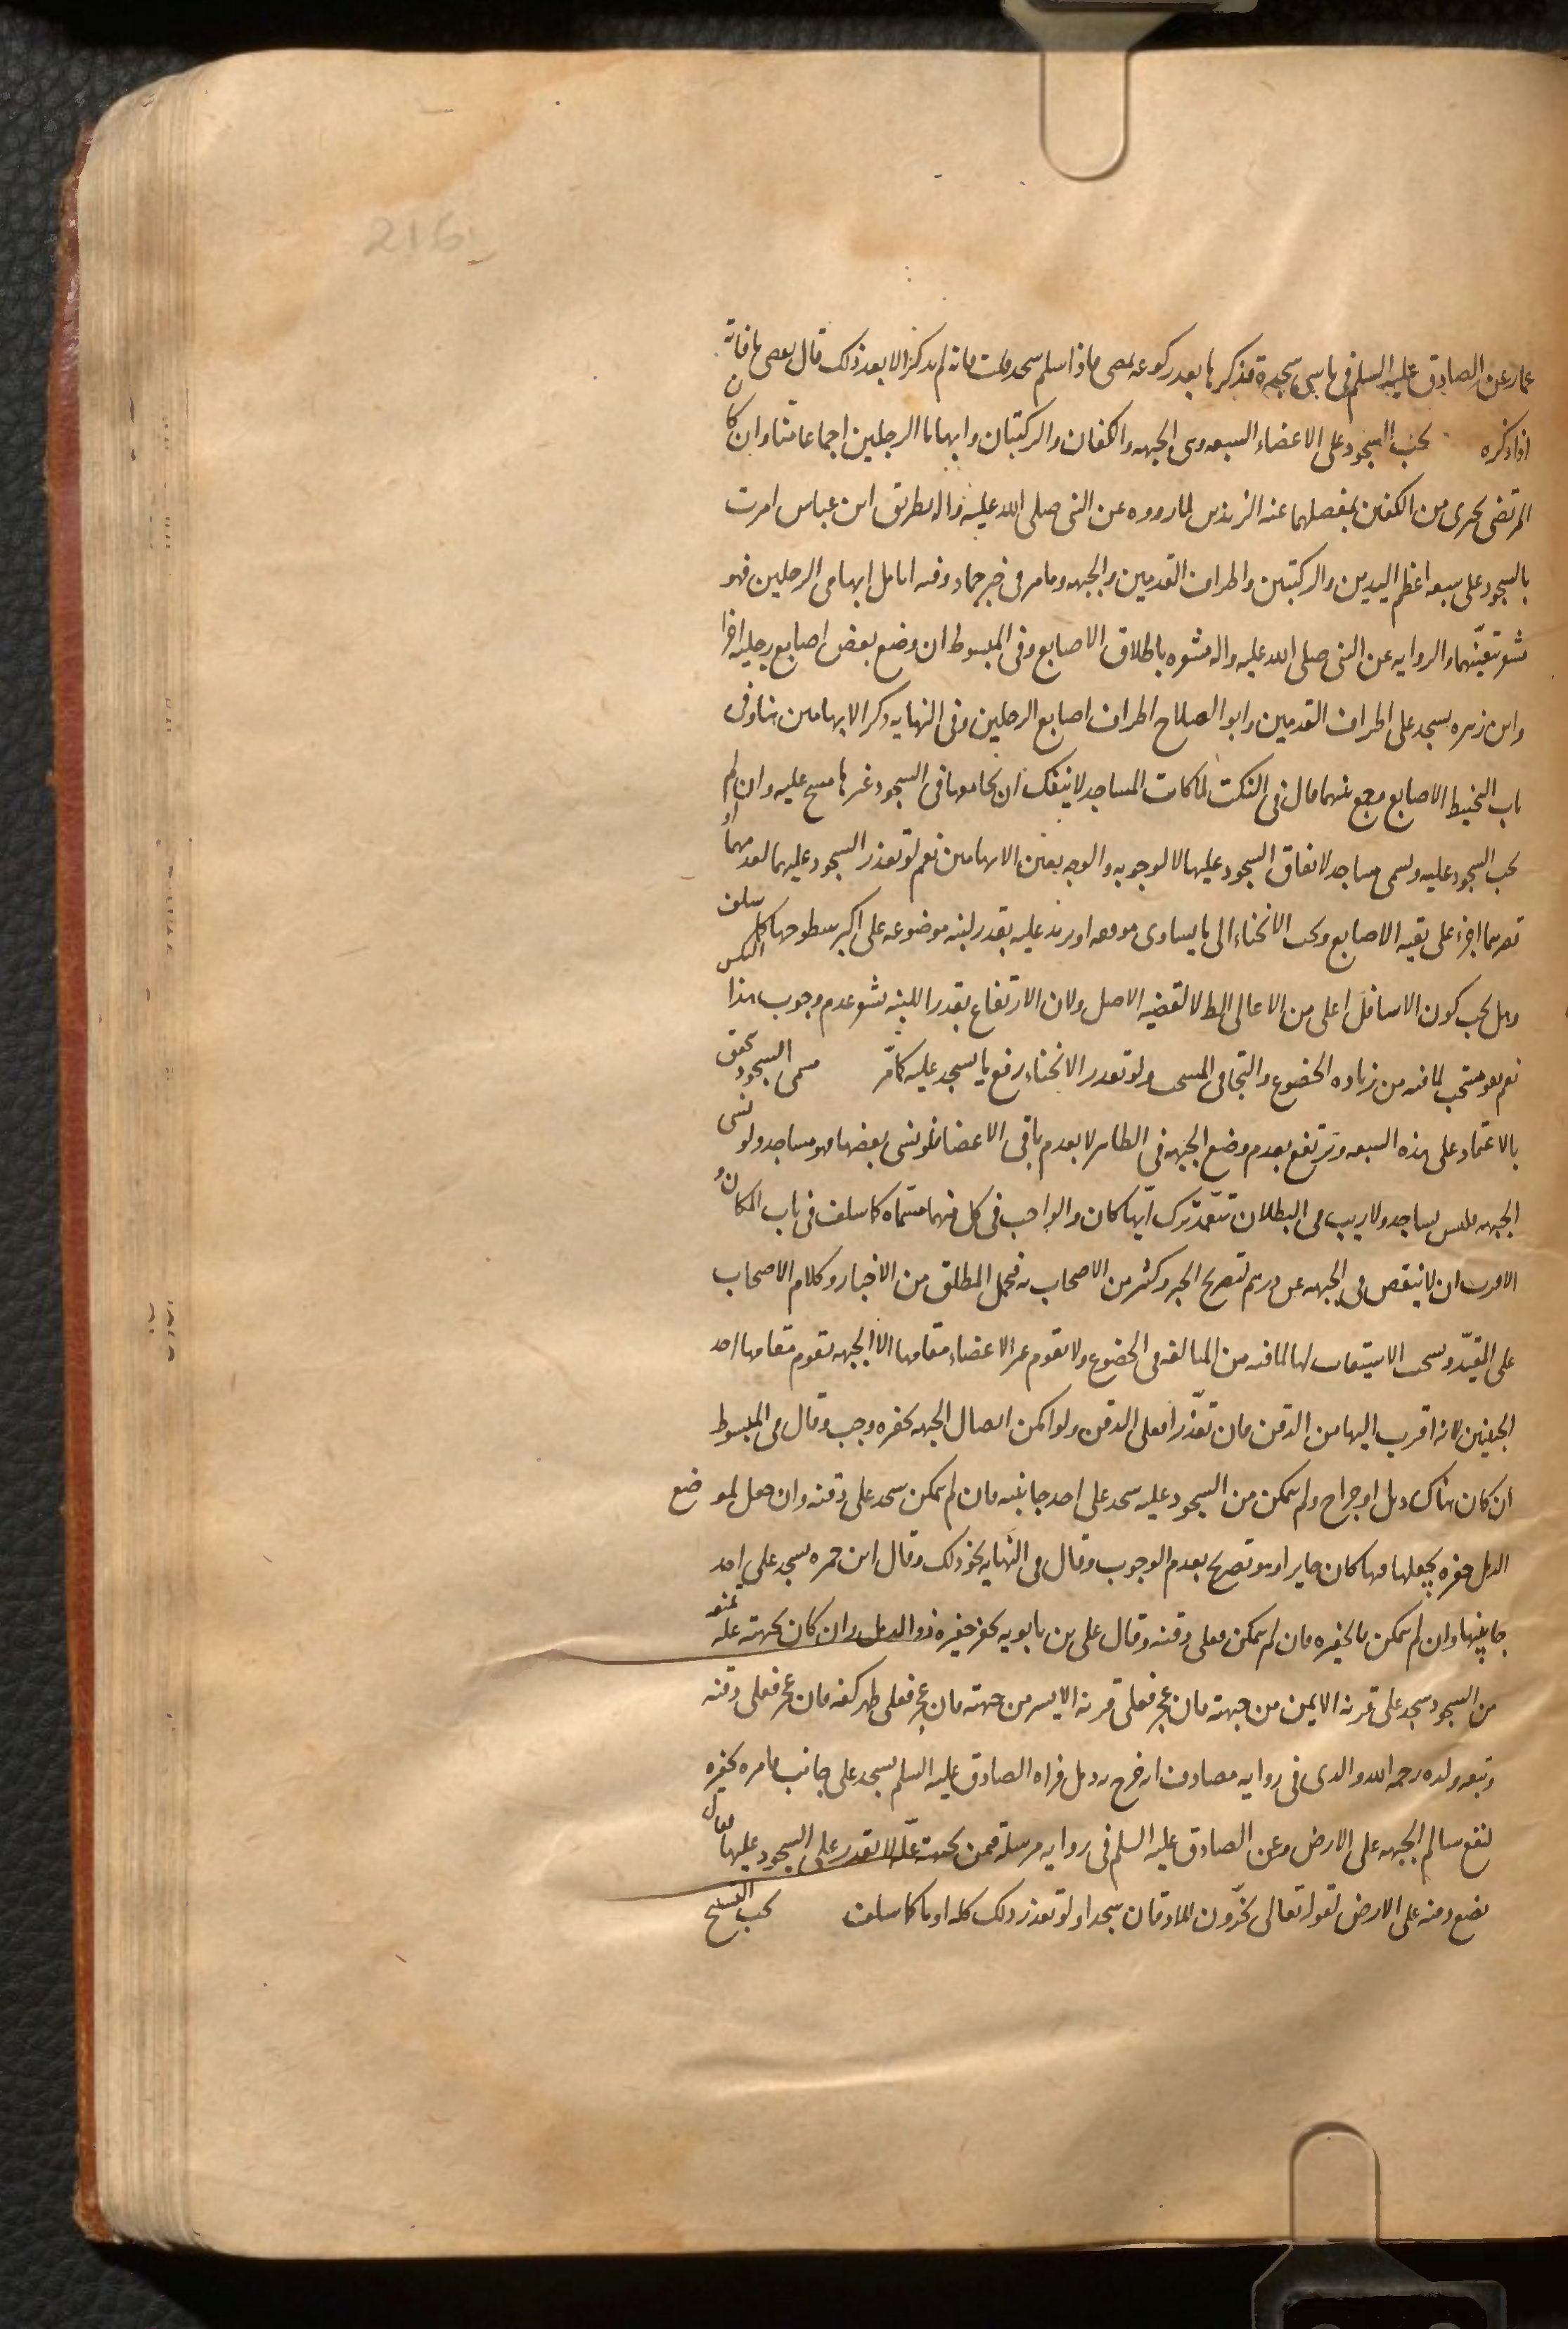 216
عمار عن الصادق عليه السلم فى ناسى سجدة فذكرها بعد ركوعه يمضى فاذا سلم سجد قلت فانه لم يذكر الا بعد ذلك قال يقضى ما فاته
اذا ذكره يجب السجود على الاعضاء السبعه وهى الجبهه والكفان والركبتان وابهاما الرجلين اجماعا منا وان كان
المرتضى يجزى من الكفين بمفصلهما عند الزندين لما رووه عن النبى صلى الله عليه واله بطريق ابن عباس امرت
بالسجود على سبعه اعظم اليدين والركبتين واطراف القدمين والجبهه ومامر فى خبر حماد وفيه انامل ابهامى الرجلين فهو
مشعر بتعينهما والروايه عن النبى صلى الله عليه واله مشعره باطلاق الاصابع وفى المبسوط ان وضع بعض اصابع رجليه اجزا
وابن زهره يسجد على اطراف القدمين وابو الصلاح اطراف اصابع الرجلين وفى النهايه ذكر الابهامين هنا وفى
باب التحنيط الاصابع وجمع بينهما قال فى النكت لما كانت المساجد لا ينفك ان يجامعها فى السجود غيرها مسح عليه وان لم
يجب السجود عليه وسمى مساجد لاتفاق السجود عليها لا لوجوبه والوجه تعين الابهامين نعم لو تعذر السجود عليهما لعدمهما او
قصرهما اجزء على بقيه الاصابع ويجب الانحناء الى ما يساوى موقفه او يزيد عليه بقدر لبنه موضوعه على اكبر سطوحها كما سلف
وهل يجب كون الاسافل اعلى من الاعالى الظ لا لقضيه الاصل ولان الارتفاع بقدر اللبنه يشعر عدم وجوب هذا التنكس
نعم هو مستحب لما فيه من زياده الخضوع والتجافى المستحب ولو تعذر الانحناء رفع ما يسجد عليه كما مر مسمى السجود يتحقق
بالاعتماد على هذه السبعه ويرتفع بعدم وضع الجبهه فى الظاهر لا بعدم باقى الاعضاء فلو نسى بعضها فهو ساجد ولو نسى
الجبهه فليس بساجد ولا ريب فى البطلان بتعمد ترك ايها كان والواجب فى كل منها مسماه كما سلف فى باب المكان و
الاقرب ان لا ينقص فى الجبهه عن درهم لتصريح الخبر وكثير من الاصحاب به فيحمل المطلق من الاخبار وكلام الاصحاب
على المقيد ويستحب الاستيعاب لها لما فيه من المبالغه فى الخضوع ولا تقوم غير الاعضاء مقامها الا الجبهه تقوم مقامها احد
الجبينين لانه اقرب اليها من الذقن فان تعذرا فعلى الذقن ولو امكن ايصال الجبهه بحفره وجب وقال فى المبسوط
ان كان هناك دمل او جراح ولم يتمكن من السجود عليه سجد على احد جانبيه فان لم يتمكن سجد على ذقنه وان جعل لموضع
الدمل حفره يجعلها فيها كان جايزا وهو تصريح بعدم الوجوب وقال فى النهايه نحو ذلك وقال ابن حمزه يسجد على احد
جانبيها وان لم يتمكن فالحفيره فان لم يتمكن فعلى ذقنه وقال على بن بابويه يحفر حفيره ذو الدمل وان كان بجبهته عله تمنعه
من السجود سجد على قرنه الايمن من جبهته فان عجز فعلى قرنه الايسر من جبهته فان عجز فعلى ظهر كفه فان عجز فعلى ذقنه
وتبعه ولده رحمه الله والذى فى روايه مصادف انه خرج به دمل فراه الصادق عليه السلم يسجد على جانب فامره بحفيره
لتقع سالم الجبهه على الارض وعن الصادق عليه السلم فى روايه مرسله فيمن بجبهته علة لا يقدر على السجود عليها قال
يضع ذقنه على الارض لقوله تعالى يخرون للاذقان سجدا ولو تعذر ذلك كله اوما كما سلف يجب التسبيح